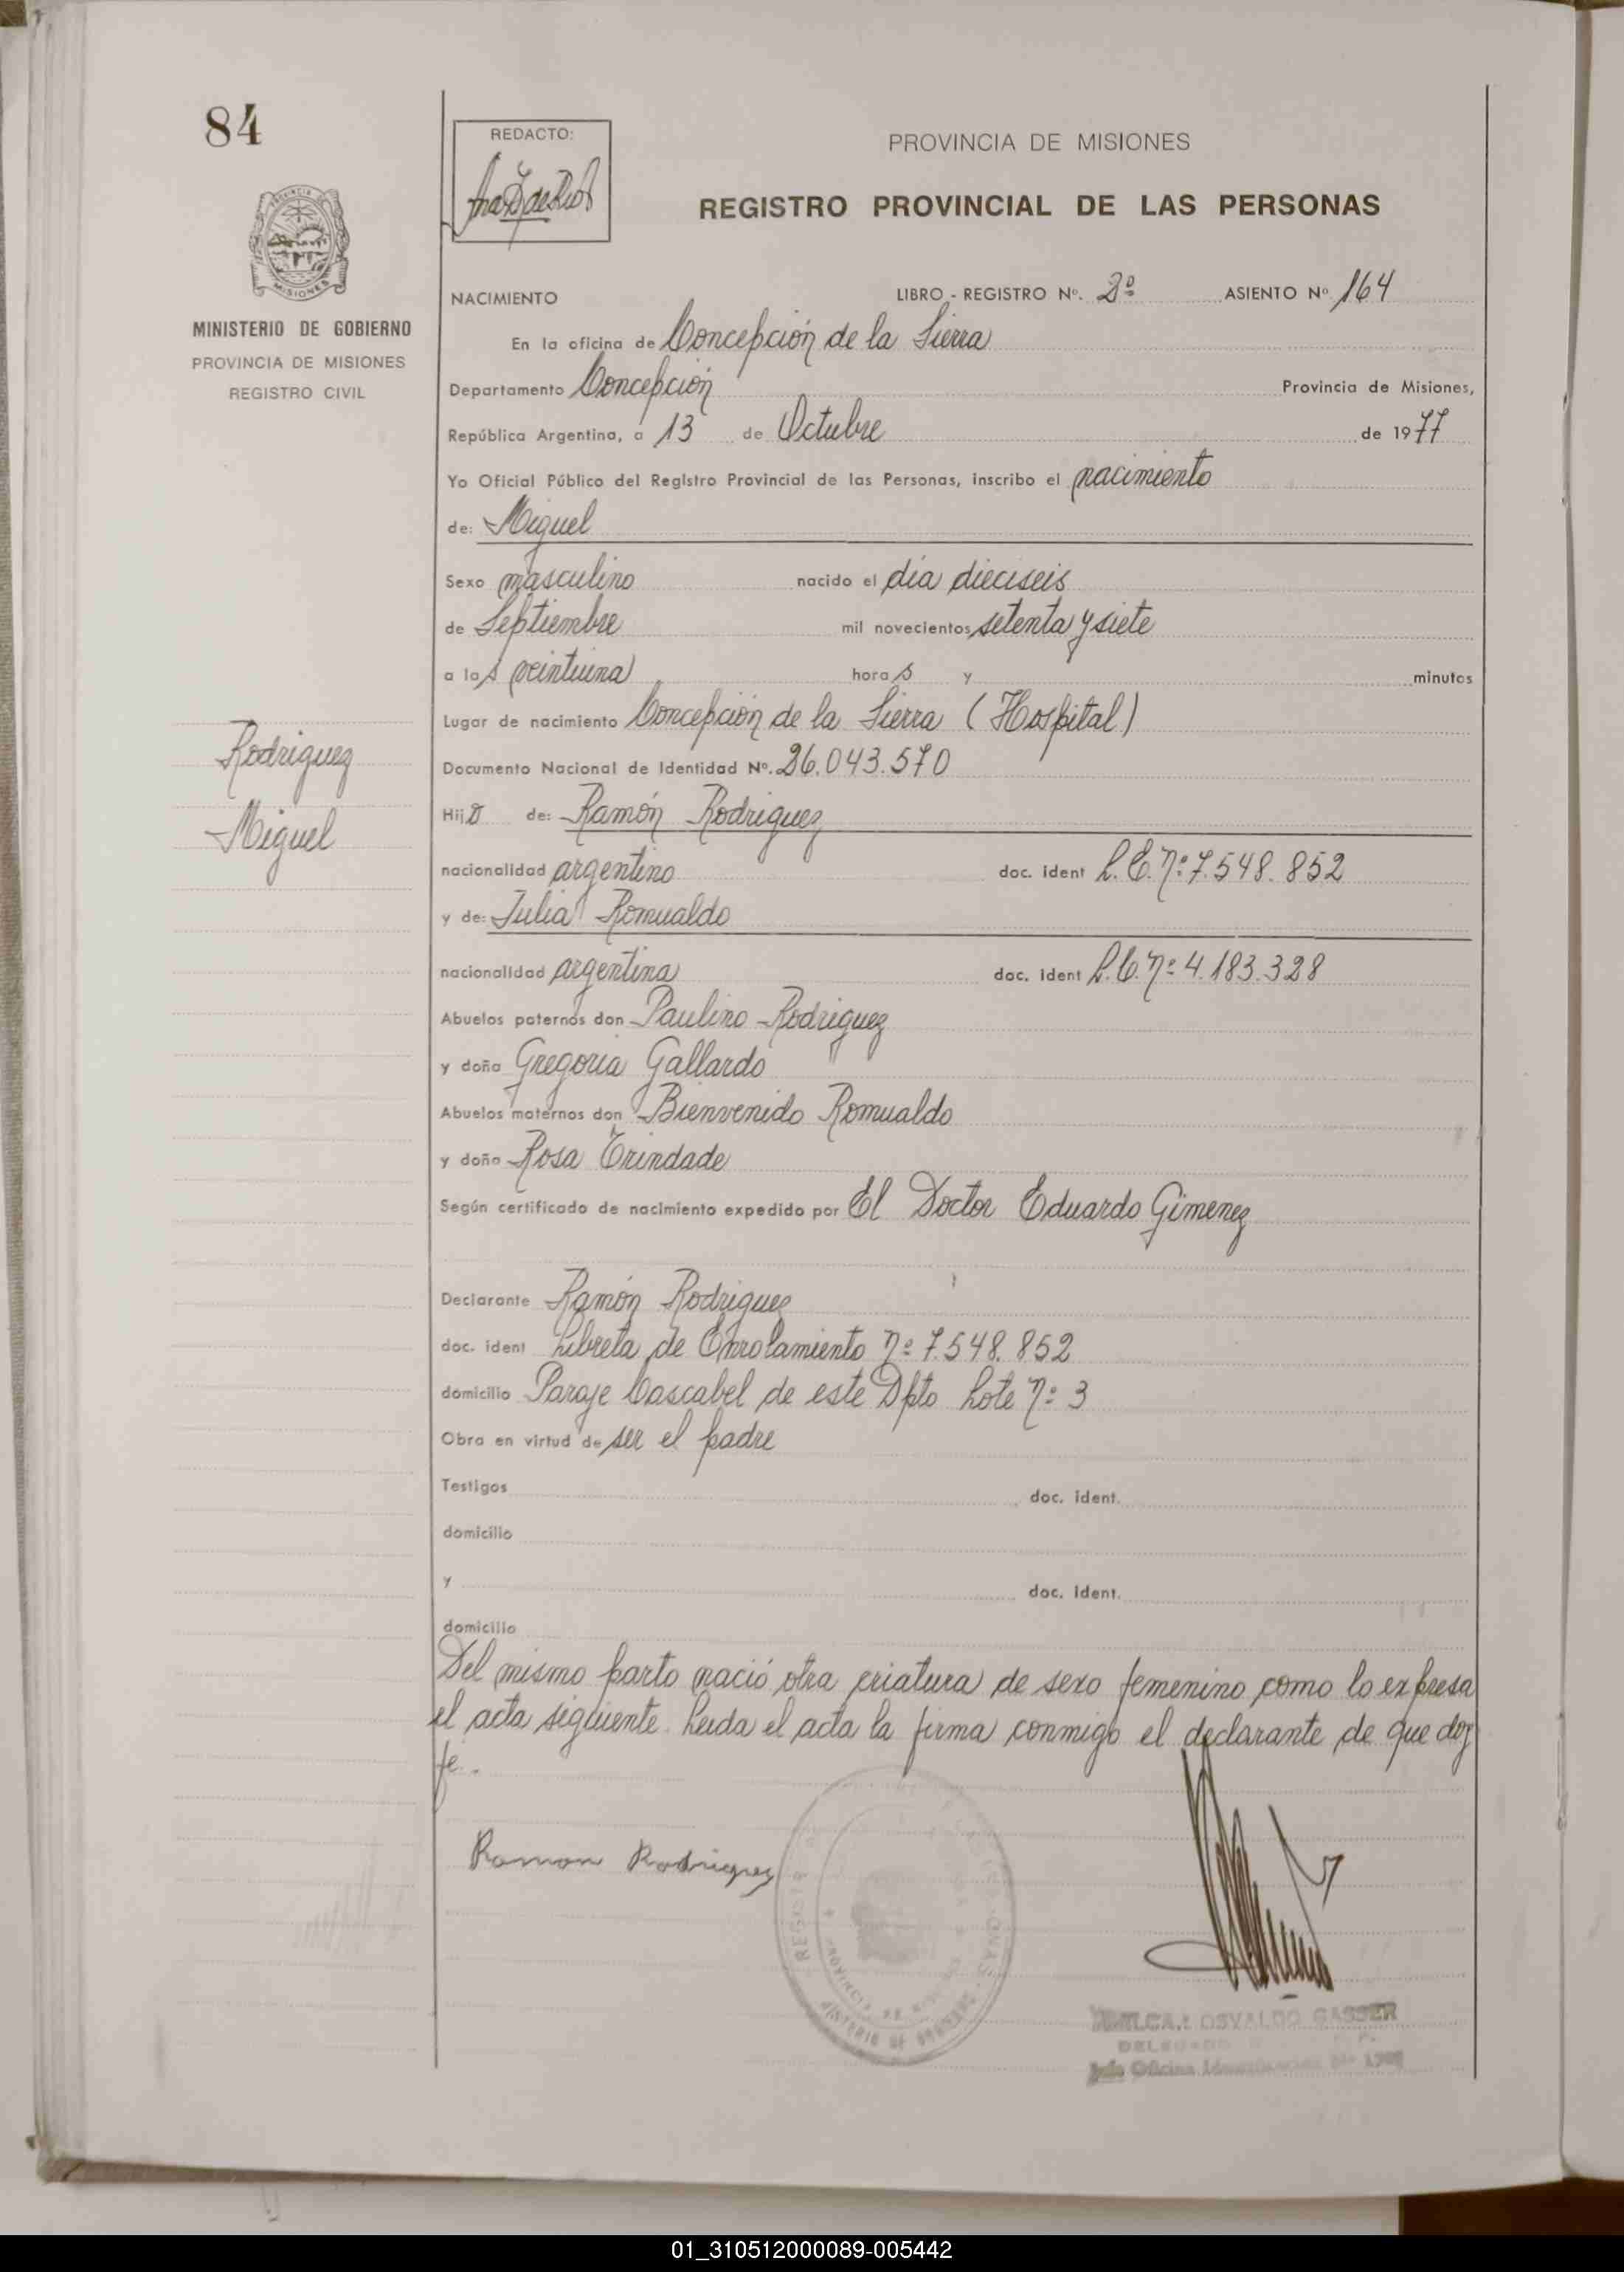 84
REDACTO:
PROVINCIA DE MISIONES
REGISTRO PROVINCIAL DE LAS PERSONAS
MISIONES
MINISTERIO DE GOBIERNO
PROVINCIA DE MISIONES
REGISTRO CIVIL
NACIMIENTO LIBRO - REGISTRO Nº. 2º ASIENTO Nº 164
En la oficina de Concepción de la Sierra
Departamento Concepción Provincia de Misiones,
República Argentina, a 13 de Octubre de 1977
Yo Oficial Público del Registro Provincial de las Personas, inscribo el nacimiento
de: Miguel
Sexo masculino nacido el día dieciseis
de Septiembre mil novecientos setenta y siete
a las veintiuna horas y minutos
Lugar de nacimiento Concepción de la Sierra (Hospital)
Documento Nacional de Identidad Nº. 26.043.570
Rodriguez
Miguel
Hijo de: Ramón Rodriguez
nacionalidad argentino doc. ident L.E. nº 7.548.852
y de: Julia Romualdo
nacionalidad argentina doc. ident L.C. nº 4.183.328
Abuelos paternos don Paulino Rodriguez
y doña Gregoria Gallardo
Abuelos maternos don Bienvenido Romualdo
y doña Rosa Trindade
Según certificado de nacimiento expedido por El Doctor Eduardo Gimenez
Declarante Ramón Rodriguez
doc. ident Libreta de Enrolamiento nº 7.548.852
domicilio Paraje Cascabel de este Dpto Lote nº 3
Obra en virtud de ser el padre
Testigos doc. ident.
domicilio
y doc. ident.
domicilio
Del mismo parto nació otra criatura de sexo femenino como lo expresa
el acta siguiente. Leida el acta la firma conmigo el declarante de que doy
fe.
Ramon Rodriguez
OSVALDO GASSER
01_310512000089-005442